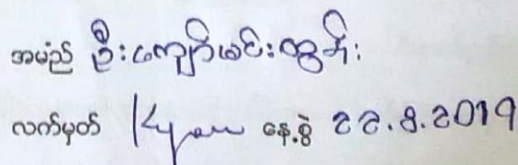 အမည် ဦးကျော်မင်းထွန်း
လက်မှတ် Kyaw နေ့စွဲ 22.8.2019